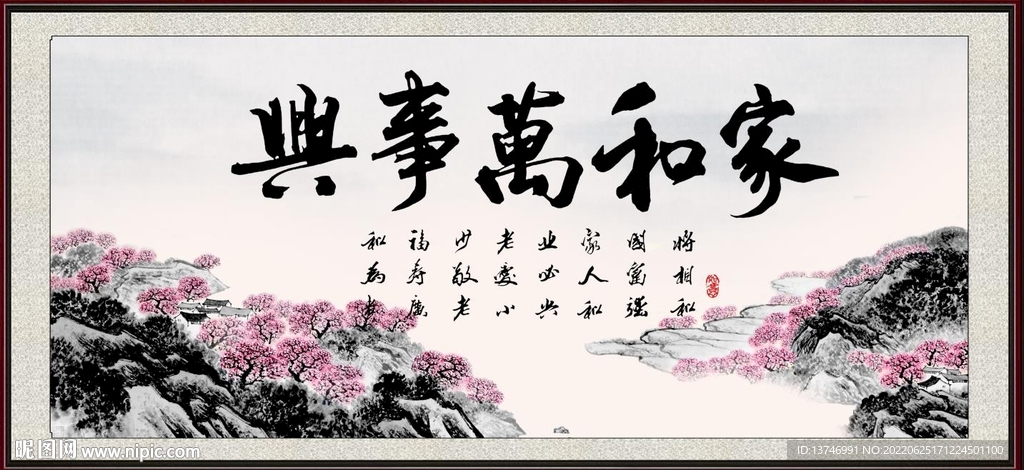 家和萬事興
將相和
國富强
家人和
业必興
老愛小
少敬老
福寿廣
和為贵
昵图网 www.nipic.com
ID:13746991 NO:20220625171224501100